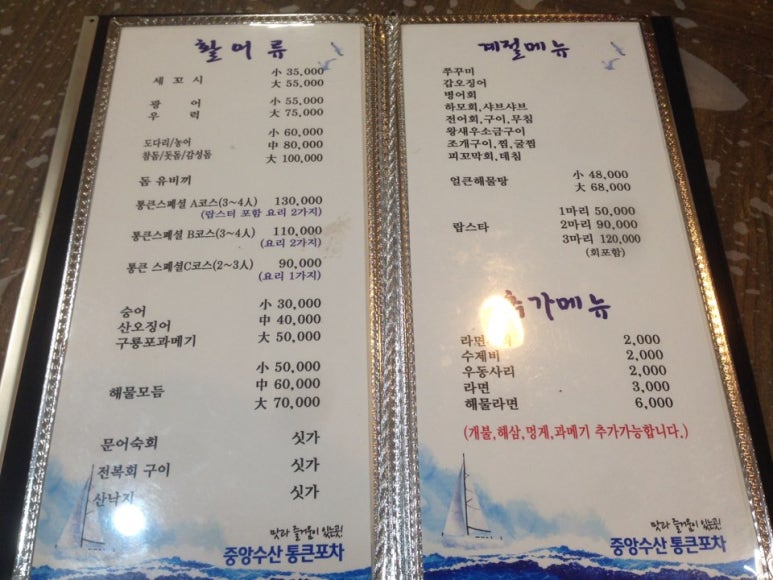 활어류
세꼬시
小 35,000
大 55,000
광어
우럭
小 55,000
大 75,000
도다리/농어
참돔/돗돔/감성돔
小 60,000
中 80,000
大 100,000
돔 유비끼
통큰스페셜 A코스(3~4人) 130,000
(랍스터 포함 요리 2가지)
통큰스페셜 B코스(3~4人) 110,000
(요리 2가지)
통큰 스페셜C코스(2~3人) 90,000
(요리 1가지)
숭어
산오징어
구룡포과메기
小 30,000
中 40,000
大 50,000
해물모듬
小 50,000
中 60,000
大 70,000
문어숙회 싯가
전복회 구이 싯가
산낙지 싯가
맛과 즐거움이 있는곳!
중앙수산 통큰포차
계절메뉴
쭈꾸미
갑오징어
병어회
하모회,샤브샤브
전어회,구이,무침
왕새우소금구이
조개구이,찜,굴찜
피꼬막회,데침
얼큰해물탕
小 48,000
大 68,000
랍스타
1마리 50,000
2마리 90,000
3마리 120,000
(회포함)
가메뉴
라면 2,000
수제비 2,000
우동사리 2,000
라면 3,000
해물라면 6,000
(개불,해삼,멍게,과메기 추가가능합니다.)
맛과 즐거움이 있는곳!
중앙수산 통큰포차